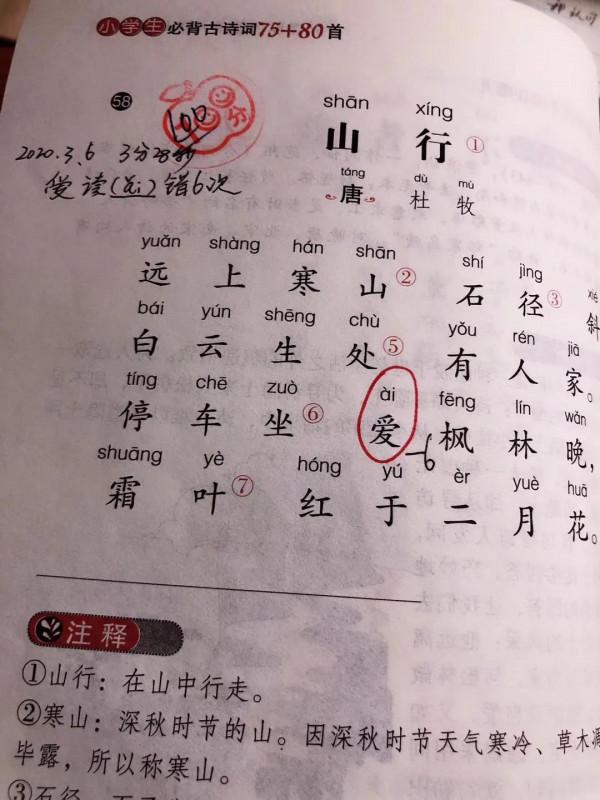 小学生必背古诗词75+80首
58
100分
shān xíng
山 行 ①
táng dù mù
唐 杜 牧
2020.3.6 3分28秒
错6次
yuǎn shàng hán shān shí jìng xié
远 上 寒 山 ② 石 径 ③ 斜
bái yún shēng chù yǒu rén jiā
白 云 生 处 ⑤ 有 人 家。
tíng chē zuò ài fēng lín wǎn
停 车 坐 ⑥ 爱 枫 林 晚，
-6
shuāng yè hóng yú èr yuè huā
霜 叶 ⑦ 红 于 二 月 花。
注释
①山行：在山中行走。
②寒山：深秋时节的山。因深秋时节天气寒冷、草木凋
毕露，所以称寒山。
③石径：